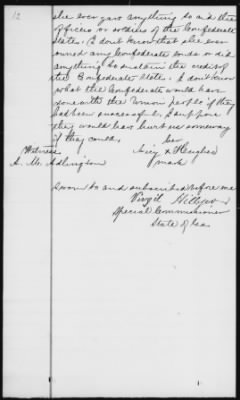 12
she ever gave anything to aid the
officers or soldiers of the Confederate
States. I don't know that she ever
owned any Confederate bonds or did
anything to sustain the credit of
the Confederate States. I don't know
what the Confederate would have
done with the Union people if they
had been successful. I suppose
they would have hurt us someway
if they could.
her
Witness x Hughes
mark
A. M.
Sworn to and subscribed before me
Virgil Hillyer
Special Commissioner
State of Ga.